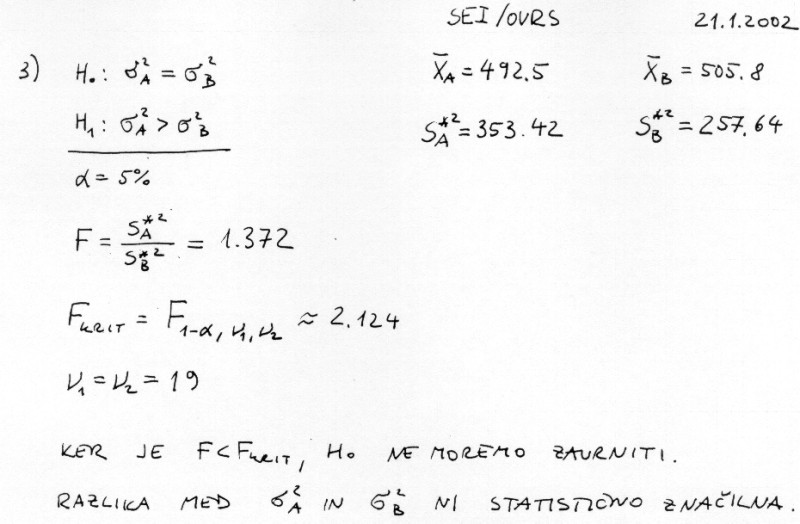 SEI/OVRS 21.1.2002
3) H₀: σ_A² = σ_B² X̄_A = 492.5 X̄_B = 505.8
H₁: σ_A² > σ_B² S_A*² = 353.42 S_B*² = 257.64
α = 5%
F = S_A*² / S_B*² = 1.372
F_KRIT = F_1-α, ν₁, ν₂ ≈ 2.124
ν₁ = ν₂ = 19
KER JE F < F_KRIT, H₀ NE MOREMO ZAVRNITI.
RAZLIKA MED σ_A² IN σ_B² NI STATISTIČNO ZNAČILNA.